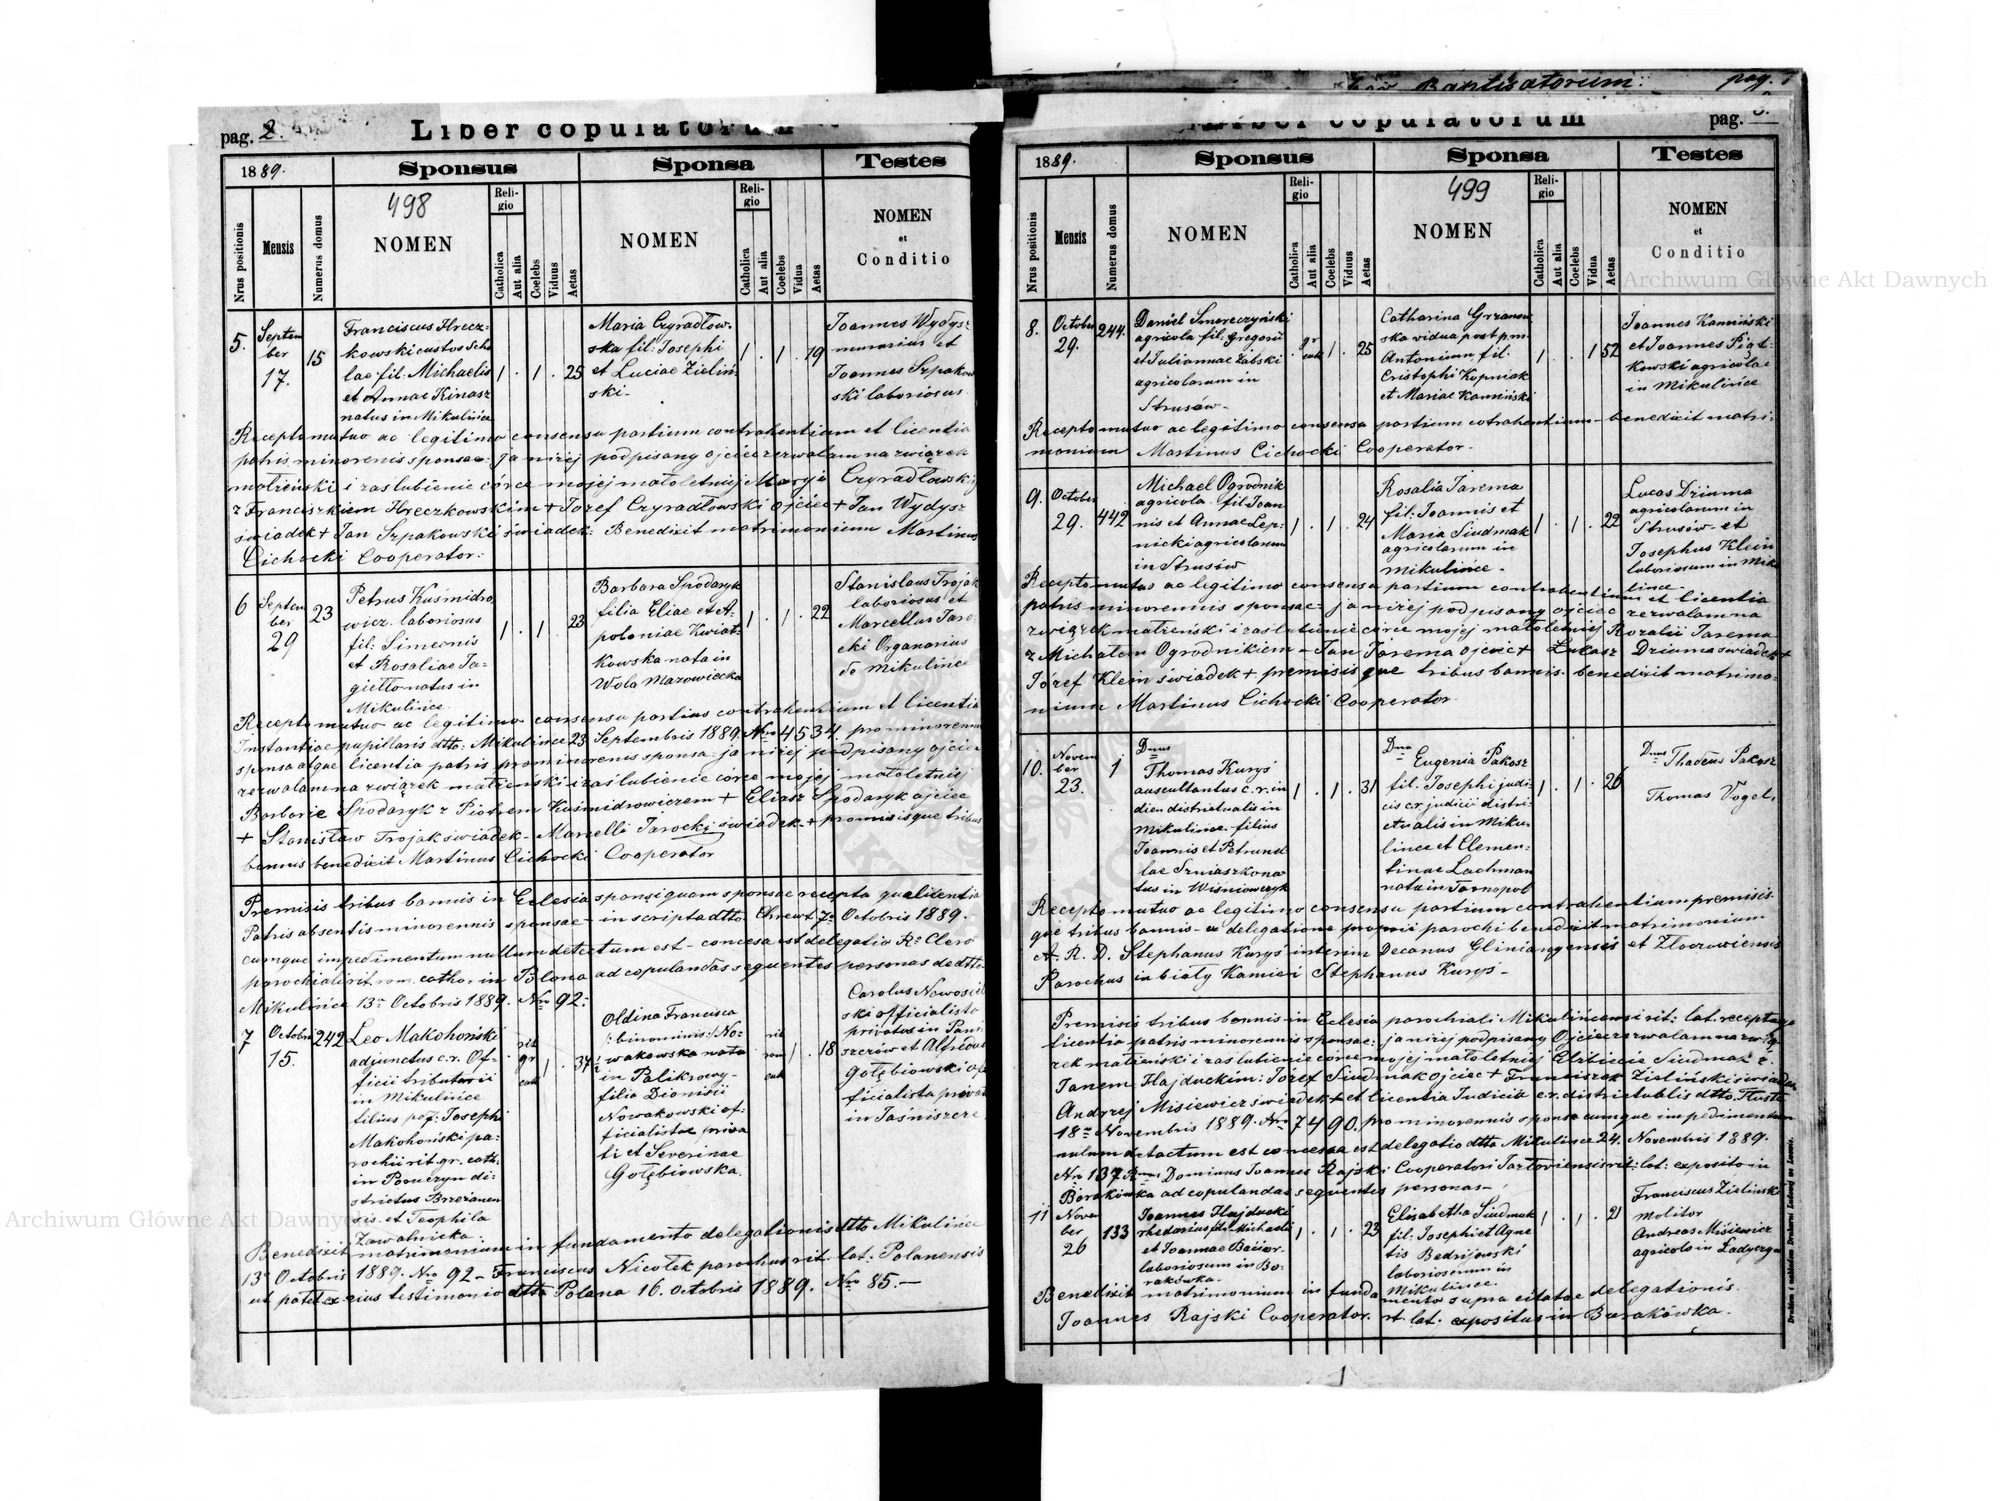 Liber Baptisatorum. pag.
pag. 2.
Liber copulatorum
1889.
Sponsus
Sponsa
Testes
Nrus positionis
Mensis
Numerus domus
498
NOMEN
Religio
Catholica
Aut alia
Coelebs
Viduus
Aetas
NOMEN
Religio
Catholica
Aut alia
Coelebs
Vidua
Aetas
NOMEN
et
Conditio
5.
Septem
ber
17.
15
Franciscus Hrecz-
kowski custos Scho
lae fil: Michaelis
et Annae Kinasz
natus in Mikulińce
1 . 1 . 25
Maria Czyradłow-
ska fil: Josephi
et Luciae Zieliń-
ski-
1 . 1 . 19
Joannes Wydysz
murarius et
Joannes Szpakow
ski laboriosus
Recepto mutuo ac legitimo consensu partium contrahentium et licentia
patris minorenis sponsae: ja niżej podpisany ojciec zezwalam na związek
małżeński i zaslubienie córce mojej małoletniej Maryi Czyradłowskiej
z Franciszkiem Hreczkowskim + Józef Czyradłowski ojciec + Jan Wydysz
świadek + Jan Szpakowski świadek: Benedixit matrimonium Martinus
Cichocki Cooperator:
6
Septem
ber
29
23
Petrus Kuśmidro
wicz laboriosus
fil: Simeonis
et Rosaliae Ja-
giełło natus in
Mikulińce
1 . 1 . 23
Barbara Spodaryk
filia Eliae et A-
poloniae Kwiat-
kowska nata in
Wola Mazowiecka
1 . 1 . 22
Stanislaus Trojak
laboriosus et
Marcellus Jaro-
cki Organarius
de Mikulińce
Recepto mutuo ac legitimo consensu partius contrahentium et licentia
Instantiae pupillaris dtto: Mikulińce 23 Septembris 1889. Nro 4534. pro minorenni
sponso atque licentia patris pro minorenis sponsa: ja niżej podpisany ojciec
zezwalam na związek małżeński i zaslubienie córce mojej małoletniej
Barbarie Spodaryk z Piotrem Kuśmidrowiczem + Eliasz Spodaryk ojciec
+ Stanisław Trojak świadek - Marcelli Jarocki świadek + premisisque tribus
bannis benedixit Martinus Cichocki Cooperator
Premisis tribus bannis in Eclesia sponsi quam sponsae recepta que licentia
Patris absentis minorennis sponsae - in scripto dtto. Chrewt 7a Octobris 1889.
cumque impedimentum nullum detectum est - concesa est delegatio Ro Clero
parochiali rit. rom. catho. in Polana ad copulandas sequentes personas de dtto.
Mikulińce 13a Octobris 1889. Nro 92:
7
Octobri
15.
242
Leo Makohoński
adjunctus c.r. Of-
ficii tributarii
in Mikulińce
filius Josephi
Makohoński pa-
rochi rit. gr. cath.
in Poruczyn di-
strictus Brzeżanen
sis. et Teophila
Zawalnicka.
rit
gr
cath
1 . 34
Oldina Francisca
(: binominis:) No-
wakowska nata
in Palikrowy-
filia Dionisii
Nowakowski of-
ficialistae priva
ti et Severinae
Gołębiowska.
rit
rom
cath
1 . 18
Carolus Nowosiel
ski officialista
privatus in Pani-
szczów et Alfredus
Gołębiowski of-
ficialista privat
in Jaśniszcze
Benedixit matrimonium in fundamento delegationis dtto Mikulińce
13a Octobris 1889. Nro 92 - Franciscus Nicołek parochus rit. lat. Polanensis
ut patet ex eius testimonio dtto Polana 16. Octobris 1889. Nro 85.-
Liber copulatorum
pag. 3.
1889.
Sponsus
Sponsa
Testes
Nrus positionis
Mensis
Numerus domus
NOMEN
Religio
Catholica
Aut alia
Coelebs
Viduus
Aetas
499
NOMEN
Religio
Catholica
Aut alia
Coelebs
Vidua
Aetas
NOMEN
et
Conditio
8.
October
29.
244.
Daniel Smereczyński
agricola fil: Gregorii
et Juliannae Żabski
agricolarum in
Strusów-
gr
cath
1 . 25
Catharina Grzanow
ska vidua post p.m.
Antonium fil:
Cristophi Kopniak
et Mariae Kamiński
1 . . 1 52
Joannes Kamiński
et Joannes Piąt-
kowski agricolae
in Mikulińce
Recepto mutuo ac legitimo consensu partium cotrahentium - benedixit matri-
monium Martinus Cichocki Cooperator.
9.
October
29.
442
Michael Ogrodnik
agricola fil: Joan
nis et Annae Lep-
nicki agricolarum
in Strusów
1 . 1 . 24
Rosalia Jarema
fil: Joannis et
Maria Siudmak
agricolarum in
Mikulińce.
1 . 1 . 22
Lucas Dziuma
agricolarum in
Strusów et
Josephus Klein
laboriosum in Miku
lińce
Recepto mutuo ac legitimo consensu partium contrahentium et licentia
patris minorennis sponsae: ja niżej podpisany ojciec zezwalam na
związek małżeński i zaslubienie córce mojej małoletniej Rozalii Jarema
z Michałem Ogrodnikiem - Jan Jarema ojciec + Łukasz Dziuma świadek +
Józef Klein świadek + premisisque tribus bannis benedixit matrimo-
nium Martinus Cichocki Cooperator
10.
Novem
ber
23.
1
Dnus
Thomas Kuryś
auscultantus c.r. in
dicii districtualis in
Mikulińce. filius
Joannis et Petrunel
lae Szniaszko na-
tus in Wiśniowczyk
1 . 1 . 31
Dna
Eugenia Pakosz
fil. Josephi judi-
cis c.r. judicii distri-
ctualis in Miku-
lince et Clemen-
tinae Lachman
nata in Tarnopol
1 . 1 . 26
Dnus Thadeus Pakosz
Thomas Vogel.
Recepto mutuo ac legitimo consensu partium contrahentium premisis-
que tribus bannis - ex delegatione proprii parochi benedixit matrimonium
A. R. D. Stephanus Kuryś interim Decanus Glinianyensis et Złoczowiensis
Parochus in biały Kamień Stephanus Kuryś-
Premisis tribus bannis in Eclesia parochiali Mikulincensi rit: lat. recepta que
licentia patris minorennis sponsae: ja niżej podpisany Ojciec zezwalam na zwią-
zek małżeński i zaslubienie córce mojej małoletniej Elżbiecie Siudmak z
Janem Hajduckim: Józef Siudmak Ojciec + Franciszek Zieliński świadek
Andrzej Misiewicz świadek + et licentia Judicia c.r. districtualis dtto.
18a Novembris 1889. Nro 7490. pro minorennis sponso cumque impedimentum
nulum detactum est concesa est delegatio dtto Mikulince 24. Novembris 1889.
Nro 137 Dominus Joannes Rajski Cooperatori rit: lat: exposito in
Borakówka ad copulandas sequentes personas-
11
Novem
ber
26
133
Joannes Hajducki
fil: Michaeli
et Joannae
laboriosum in Bo-
rakówka.
1 . 1 . 23
Elisabetha Siudmak
fil: Josephi et Agne
tis Bedrijowski
laboriosorum in
Mikulińce.
1 . 1 . 21
Franciscus Zielinski
molitor
Andreas Misiewicz
agricola in Ładyczyn
Benedixit matrimonium in fundamento supra citatae delegationis.
Joannes Rajski Cooperator. rt. lat. expositus in Burakówka.
Archiwum Główne Akt Dawnych
Archiwum Główne Akt Dawnych